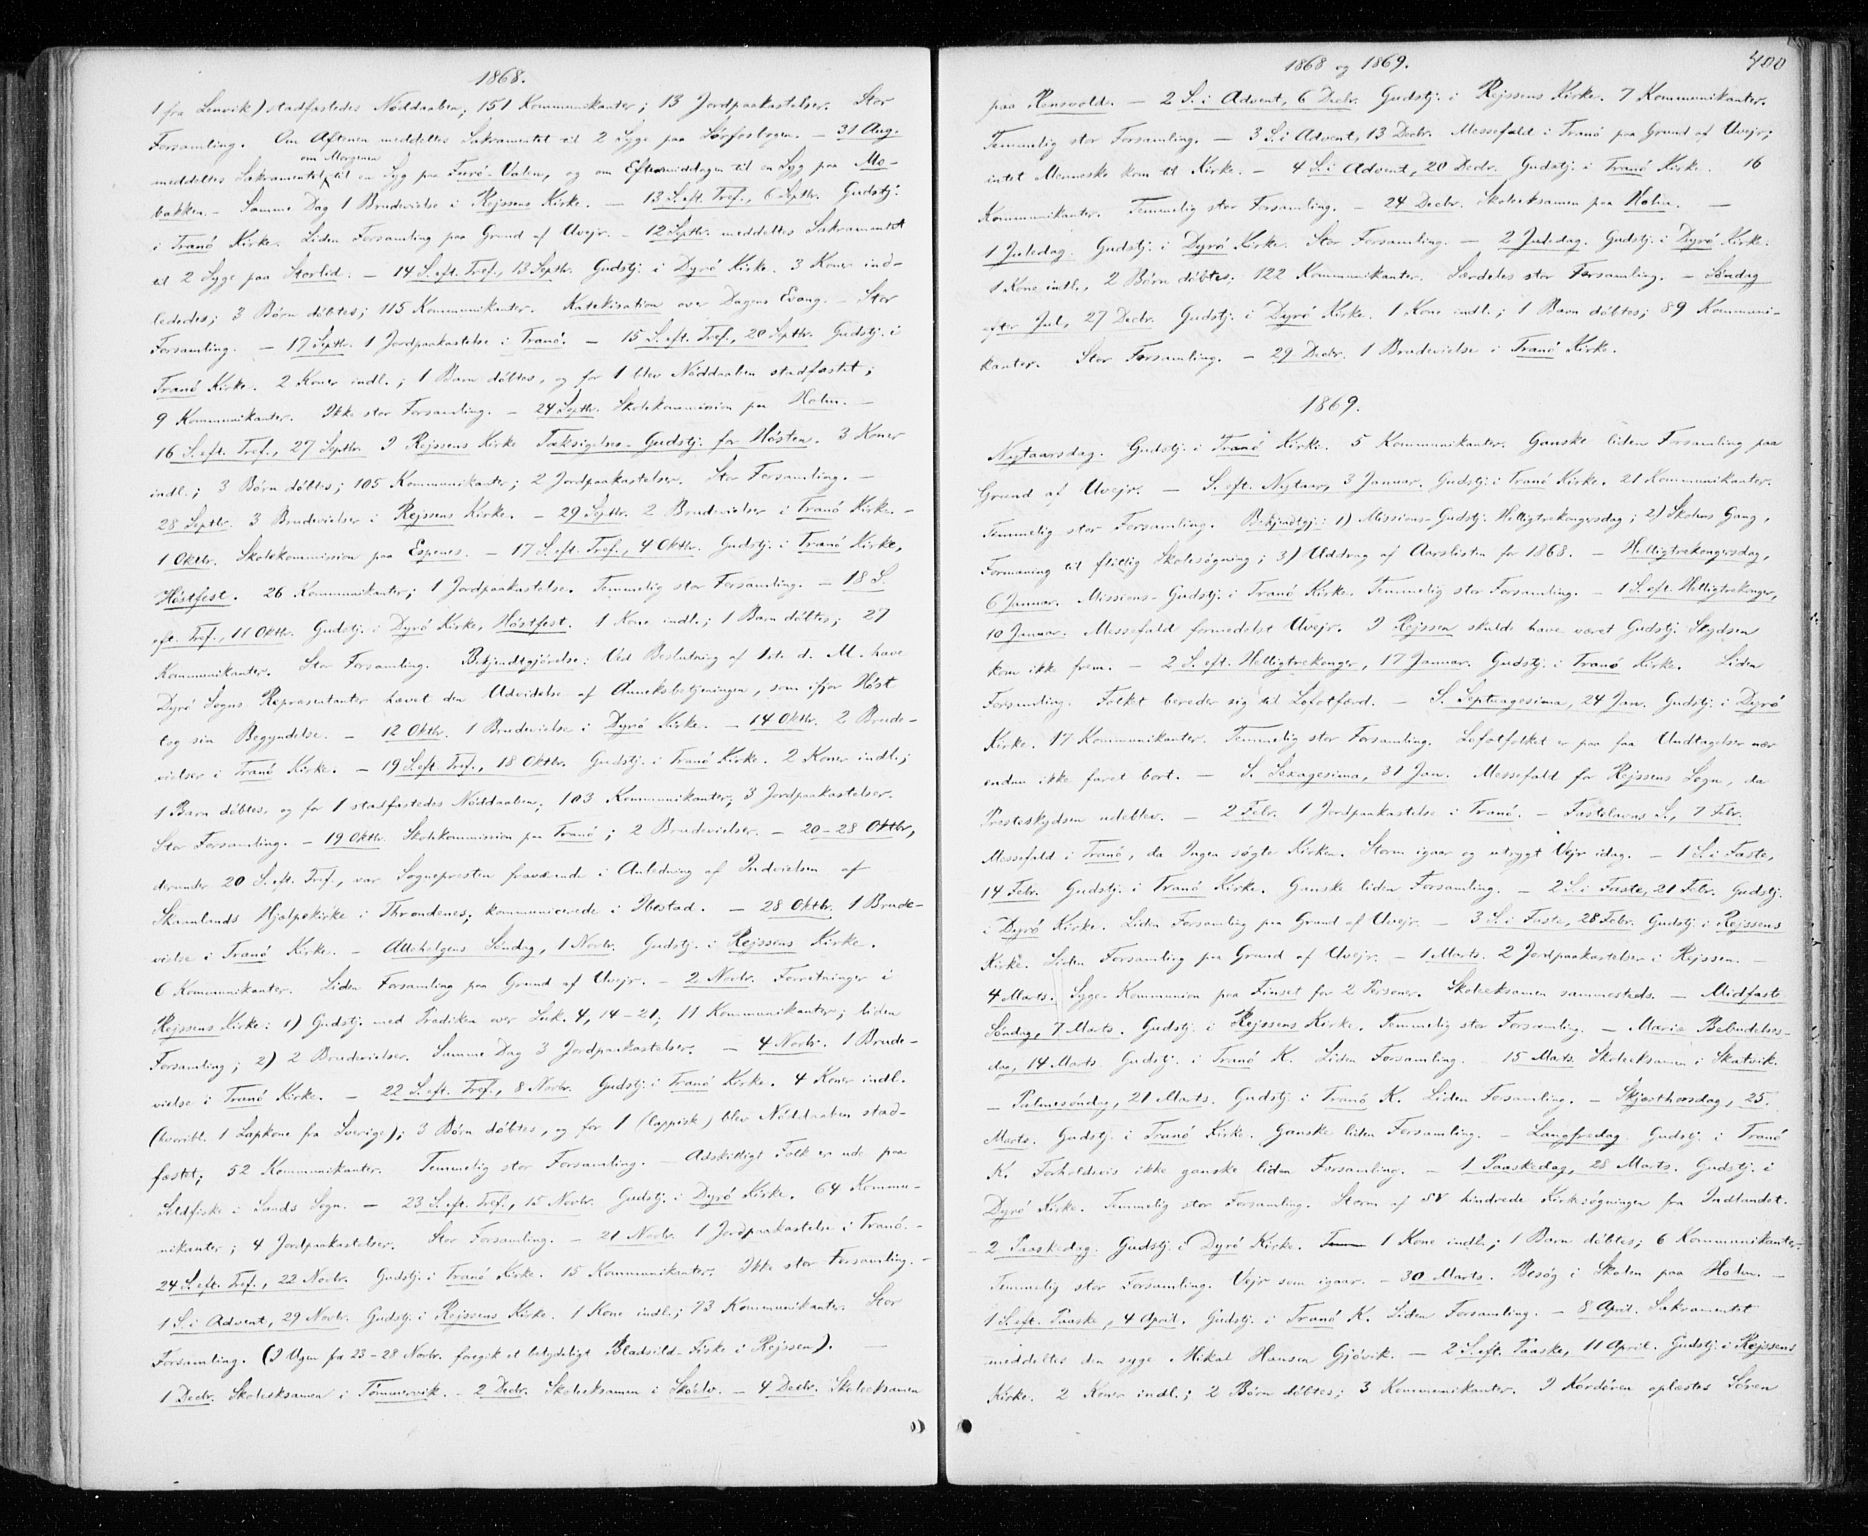 1868.
1 fra Lenvik) stadfæstedes Nøddaaben; 151 Kommunikanter; 13 Jordpaakastelser. Stor
Forsamling. Om Aftenen meddeltes Sakramentet til 2 Syge paa Sørforslogen. – 31 Aug.
om Morgenen
meddeltes Sakramentet til en Syg paa Furö-Valen, og om Eftermiddagen til en Syg paa Mo-
bakken. – Samme Dag 1 Brudevielse i Rejssens Kirke. – 13 S. eft. Tref., 6 Septbr. Gudstj.
i Tranö Kirke. Liden Forsamling paa Grund af Uvejr. – 12 Septbr. meddeltes Sakramentet
til 2 Syge paa Storlid. – 14 S. eft. Tref., 13 Septbr. Gudstj. i Dyrö Kirke. 3 Koner ind-
lededes; 3 Børn døbtes; 115 Kommunikanter. Katekisation over Dagens Evang. – Stor
Forsamling. – 17 Septbr. 1 Jordpaakastelse i Tranö. – 15 S. eft. Tref., 20 Septbr. Gudstj. i
Tranö Kirke. 2 Koner indl.; 1 Barn döbtes, og for 1 blev Nöddaaben stadfæstet;
9 Kommunikanter. Ikke stor Forsamling. – 24 Septbr. Skolekommission paa Holm. –
16 S. eft. Tref., 27 Septbr. I Rejssens Kirke Taksigelses-Gudstj. for Hösten. 3 Koner
indl.; 3 Børn døbtes; 105 Kommunikanter; 2 Jordpaakastelser. Stor Forsamling. –
28 Septbr. 3 Brudevielser i Rejssens Kirke. – 29 Septbr. 2 Brudevielser i Tranö Kirke. –
1 Oktbr. Skolekommission paa Espenes. – 17 S. eft. Tref., 4 Oktbr. Gudstj. i Tranö Kirke,
Höstfest. 26 Kommunikanter; 1 Jordpaakastelse. Temmelig stor Forsamling. – 18 S.
eft. Tref., 11 Oktbr. Gudstj. i Dyrö Kirke, Höstfest. 1 Kone indl.; 1 Barn döbtes; 27
Kommunikanter. Stor Forsamling. Bekjendtgjörelse: Ved Beslutning af 1ste d. M. have
Dyrö Sogns Repræsentanter hævet den Udvidelse af Anneksbetjeningen, som ifjor Höst
tog sin Begyndelse. – 12 Oktbr. 1 Brudevielse i Dyrö Kirke. – 14 Oktbr. 2 Brude-
vielser i Tranö Kirke. – 19 S. eft. Tref., 18 Oktbr. Gudstj. i Tranö Kirke. 2 Koner indl.;
1 Barn döbtes, og for 1 stadfæstedes Nöddaaben; 103 Kommunikanter; 3 Jordpaakastelser.
Stor Forsamling. – 19 Oktbr. Skolekommission paa Tranö; 2 Brudevielser. – 20–28 Oktbr,
derunder 20 S. eft. Tref., var Sognepresten fraværende i Anledning af Indvielsen af
Skaanlands Hjælpekirke i Throndenes; kommunicerede i Ibestad. – 28 Oktbr. 1 Brude-
vielse i Tranö Kirke. – Allehelgens Söndag, 1 Novbr. Gudstj. i Rejssens Kirke.
6 Kommunikanter. Liden Forsamling paa Grund af Uvejr. – 2 Novbr. Forretninger i
Rejssens Kirke: 1) Gudstj. med Prædiken over Luk. 4, 14–21; 11 Kommunikanter; liden
Forsamling; 2) 2 Brudevielser. Samme Dag 3 Jordpaakastelser. – 4 Novbr. 1 Brude-
vielse i Tranö Kirke. – 22 S. eft. Tref., 8 Novbr. Gudstj. i Tranö Kirke. 4 Koner indl.
(hvoribl. 1 Lapkone fra Sverige); 3 Børn døbtes, og for 1 (lappisk) blev Nöddaaben stad-
fæstet; 52 Kommunikanter. Temmelig stor Forsamling. – Adskilligt Folk er ude paa
Sildfiske i Sands Sogn. – 23 S. eft. Tref., 15 Novbr. Gudstj. i Dyrö Kirke. 64 Kommu-
nikanter; 4 Jordpaakastelser. Stor Forsamling. – 21 Novbr. 1 Jordpaakastelse i Tranö. –
24 S. eft. Tref., 22 Novbr. Gudstj. i Tranö Kirke. 15 Kommunikanter. Ikke stor Forsamling. –
1 S. i Advent, 29 Novbr. Gudstj. i Rejssens Kirke. 1 Kone indl.; 73 Kommunikanter. Stor
Forsamling. (I Ugen fra 23–28 Novbr. foregik et betydeligt Bladsild-Fiske i Rejssen). –
1 Decbr. Skoleeksamen i Tömmervik. – 2 Decbr. Skoleeksamen i Skörlv. – 4 Decbr. Skoleeksamen
1868 og 1869.
400
paa Rensvold. – 2 S. i Advent, 6 Decbr. Gudstj. i Rejssens Kirke. 7 Kommunikanter.
Temmelig stor Forsamling. – 3 S. i Advent, 13 Decbr. Messefald i Tranö paa Grund af Uvejr;
intet Menneske kom til Kirke. – 4 S. i Advent, 20 Decbr. Gudstj. i Tranö Kirke. 16
Kommunikanter. Temmelig stor Forsamling. – 24 Decbr. Skoleeksamen paa Holm. –
1 Juledag. Gudstj. i Dyrö Kirke. Stor Forsamling. – 2 Juledag. Gudstj. i Dyrö Kirke.
1 Kone indl., 2 Børn döbtes; 122 Kommunikanter. Særdeles stor Forsamling. – Söndag
efter Jul, 27 Decbr. Gudstj. i Dyrö Kirke. 1 Kone indl.; 1 Barn döbtes; 89 Kommuni-
kanter. Stor Forsamling. – 29 Decbr. 1 Brudevielse i Tranö Kirke.
1869.
Nytaarsdag. Gudstj. i Tranö Kirke. 5 Kommunikanter. Ganske liden Forsamling paa
Grund af Uvejr. – S. eft. Nytaar, 3 Januar. Gudstj. i Tranö Kirke. 21 Kommunikanter.
Temmelig stor Forsamling. Bekjendtgj.: 1) Missions-Gudstj. Helligtrekongersdag; 2) Skolens Gang,
Formaning til flittig Skolesögning; 3) Uddrag af Aarslisten for 1868. – Helligtrekongersdag,
6 Januar. Missions-Gudstj. i Tranö Kirke. Temmelig stor Forsamling. – 1 S. eft. Helligtrekonger,
10 Januar. Messefald formedelst Uvejr. I Rejssen skulde have været Gudstj. Skydsen
kom ikke frem. – 2 S. eft. Helligtrekonger, 17 Januar. Gudstj. i Tranö Kirke. Liden
Forsamling. Folket bereder sig til Lofotfærd. – S. Septuagesima, 24 Jan. Gudstj. i Dyrö
Kirke. 17 Kommunikanter. Temmelig stor Forsamling. Lofotfolket er paa faa Undtagelser nær
endnu ikke faret bort. – S. Sexagesima, 31 Jan. Messefald for Rejssens Sogn, da
Presteskydsen udeblev. – 2 Febr. 1 Jordpaakastelse i Tranö. – Fastelavns S., 7 Febr.
Messefald i Tranö, da Ingen søgte Kirken. Storm igaar og utrygt Vejr idag. – 1 S. i Faste,
14 Febr. Gudstj. i Tranö Kirke. Ganske liden Forsamling. – 2 S. i Faste, 21 Febr. Gudstj.
i Dyrö Kirke. Liden Forsamling paa Grund af Uvejr. – 3 S. i Faste, 28 Febr. Gudstj. i Rejssens
Kirke. Liden Forsamling paa Grund af Uvejr. – 1 Marts. 2 Jordpaakastelser i Rejssen. –
4 Marts. Syge-Kommunion paa Finset for 2 Personer. Skoleeksamen sammesteds. – Midfaste
Söndag, 7 Marts. Gudstj. i Rejssens Kirke. Temmelig stor Forsamling. – Mariæ Bebudelses-
dag, 14 Marts. Gudstj. i Tranö K. Liden Forsamling. – 15 Marts. Skoleeksamen i Skatvik.
– Palmesöndag, 21 Marts. Gudstj. i Tranö K. Liden Forsamling. – Skjærthorsdag, 25.
Marts. Gudstj. i Tranö Kirke. Ganske liden Forsamling. – Langfredag. Gudstj. i Tranö
K. Forholdsvis ikke ganske liden Forsamling. – 1 Paaskedag, 28 Marts. Gudstj. i
Dyrö Kirke. Temmelig stor Forsamling. Storm af SV hindrede Kirkesögningen fra Indlandet.
– 2 Paaskedag. Gudstj. i Dyrö Kirke. 1 Kone indl.; 1 Barn döbtes; 6 Kommunikanter.
Temmelig stor Forsamling. Vejr som igaar. – 30 Marts. Besög i Skolen paa Holm. –
1 S. eft. Paaske, 4 April. Gudstj. i Tranö K. Liden Forsamling. – 8 April. Sakramentet
meddeltes den syge Mikal Hansen Gjövik. – 2 S. eft. Paaske, 11 April. Gudstj. i Rejssens
Kirke. 2 Koner indl.; 2 Børn döbtes; 3 Kommunikanter. I Kordören oplæstes Sören